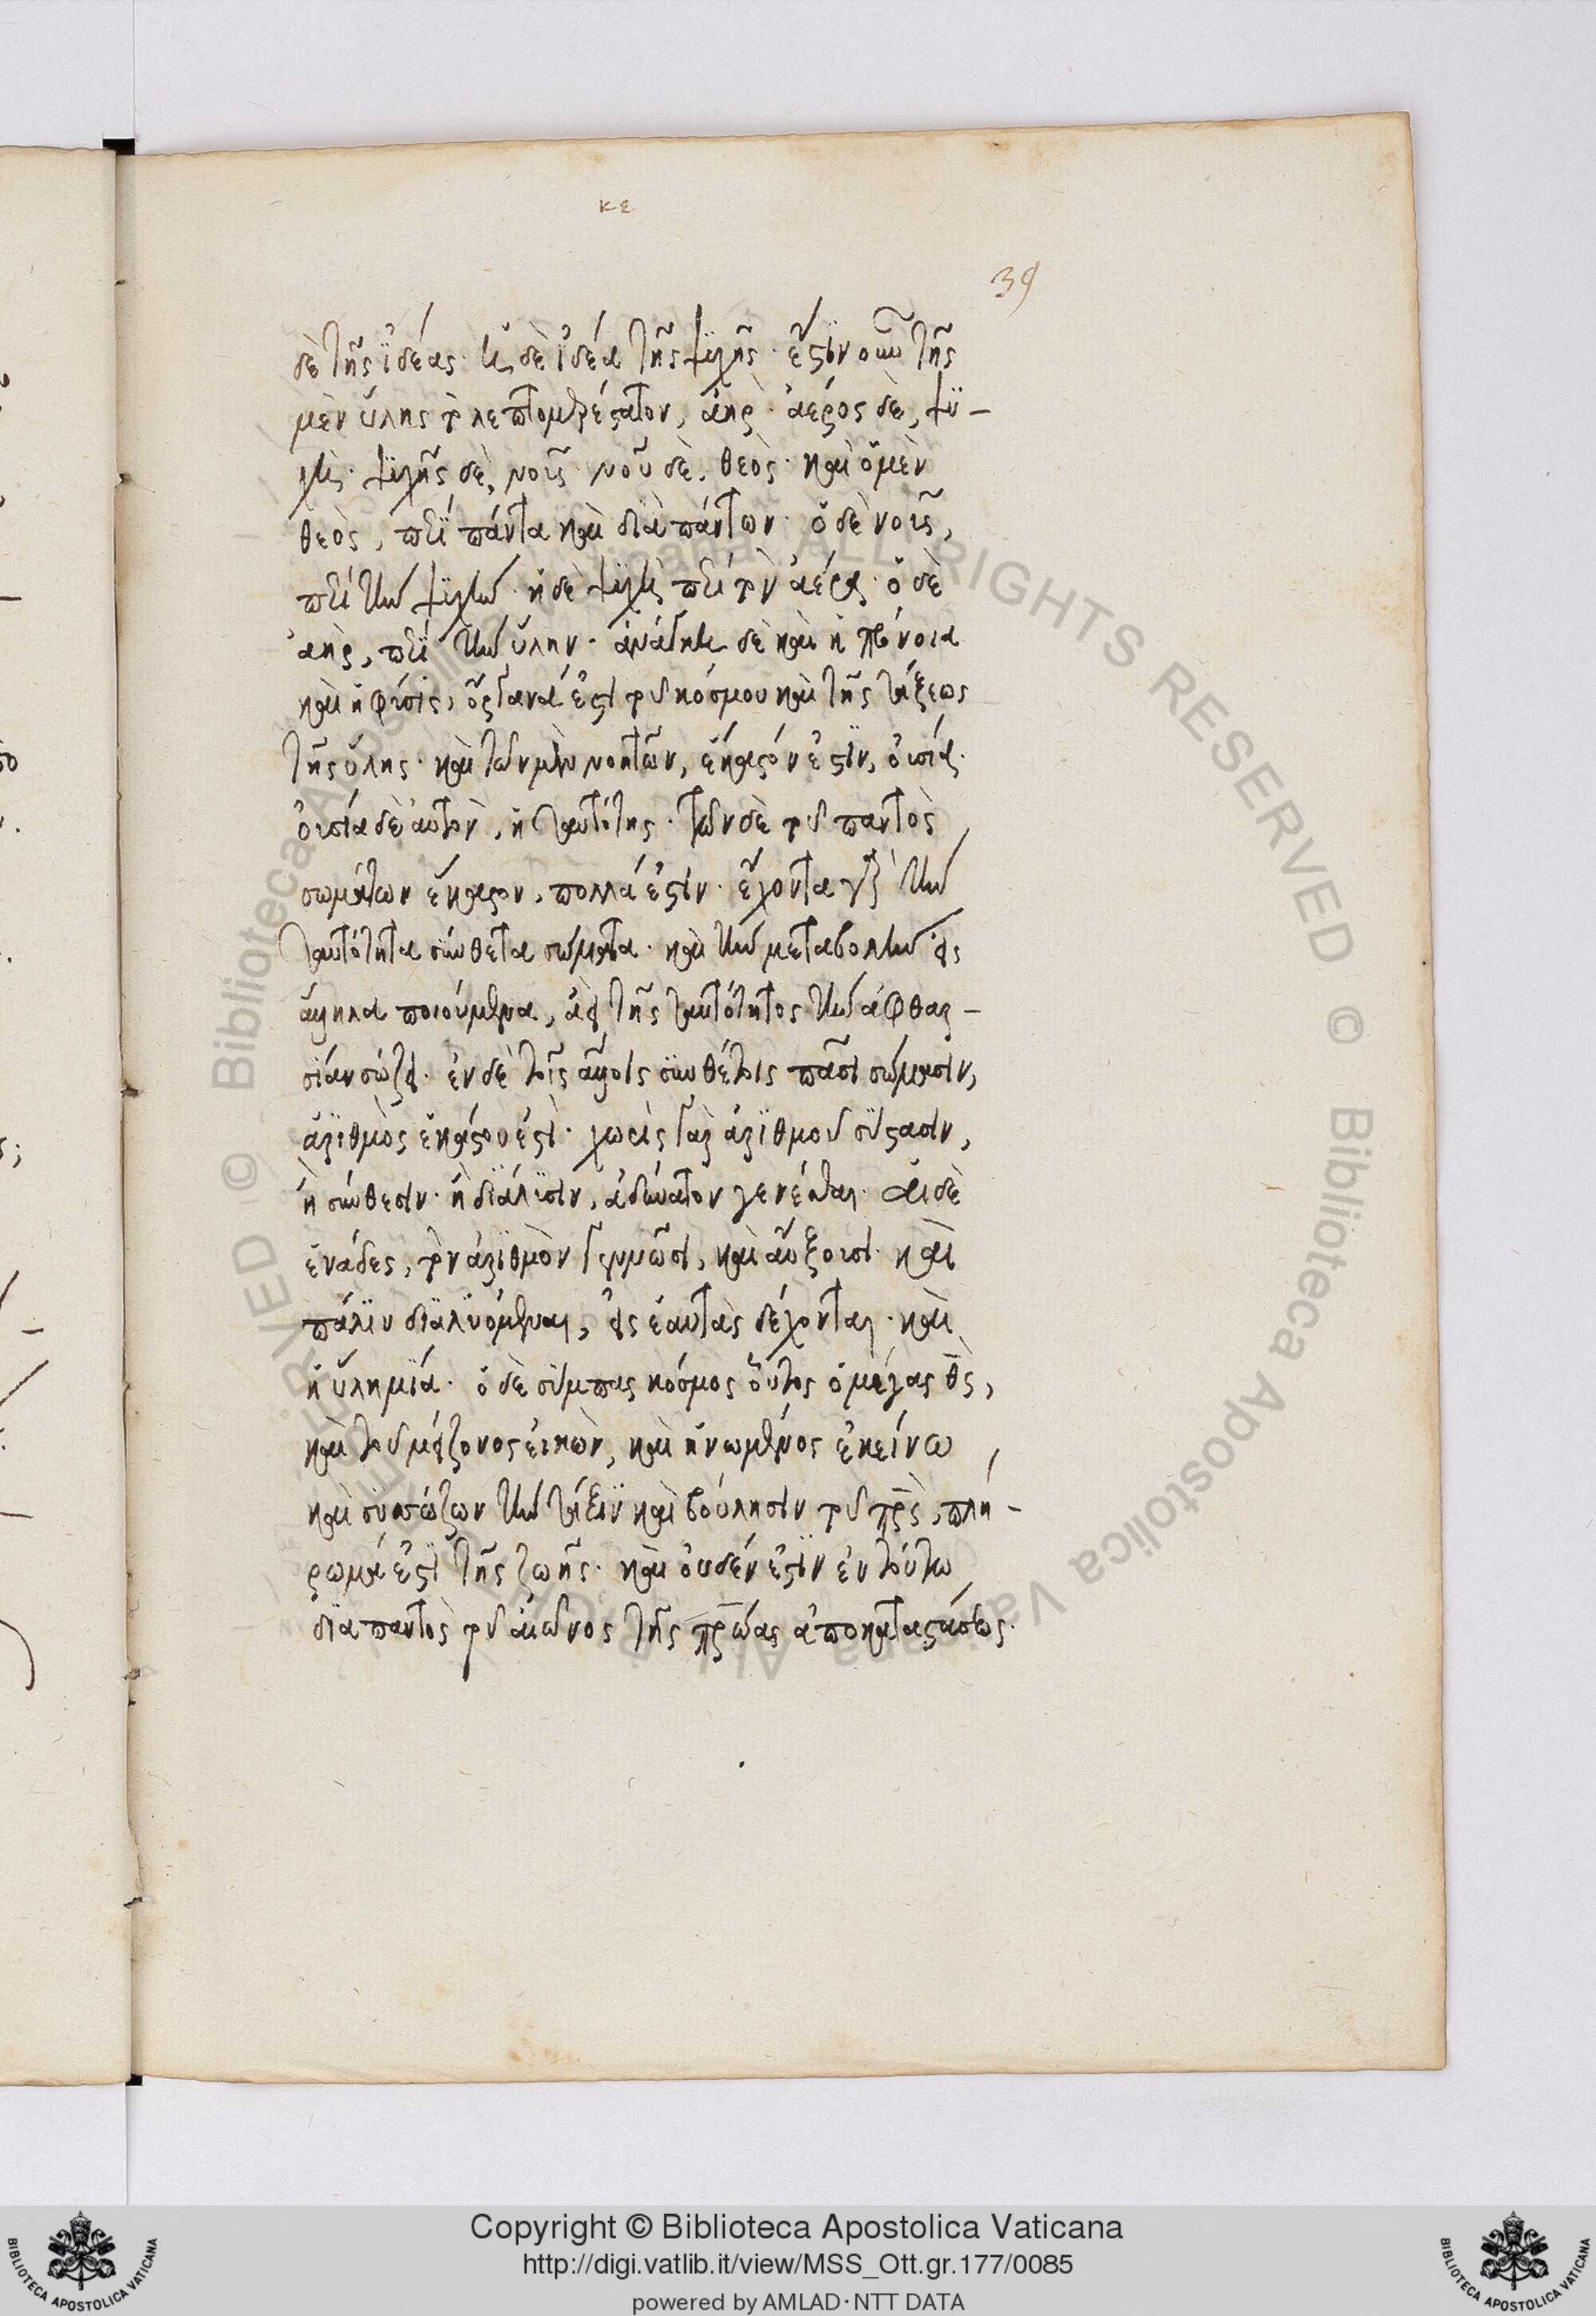 κε
39
δὲ τῆς ἰδέας. ἡ δὲ ἰδέα τῆς ψυχῆς. ἔστιν οὖν τῆς
μὲν ὕλης τὸ λεπτομερέστατον, ἀήρ. ἀέρος δὲ, ψυ-
χή. ψυχῆς δὲ, νοῦς. νοῦ δὲ, θεός. καὶ ὁ μὲν
θεὸς, περὶ πάντα καὶ διὰ πάντων. ὁ δὲ νοῦς,
περὶ τὴν ψυχήν. ἡ δὲ ψυχὴ περὶ τὸν ἀέρα. ὁ δὲ
ἀὴρ, περὶ τὴν ὕλην. ἀνάγκη δὲ καὶ ἡ πρόνοια
καὶ ἡ φύσις, ὄργανά ἐστι τοῦ κόσμου καὶ τῆς τάξεως
τῆς ὕλης. καὶ τῶν μὲν νοητῶν, ἕκαστόν ἐστιν, οὐσία.
οὐσία δὲ αὐτῶν, ἡ ταυτότης. τῶν δὲ τοῦ παντὸς
σωμάτων ἕκαστον, πολλά ἐστιν. ἔχοντα γὰρ τὴν
ταυτότητα σύνθετα σώματα. καὶ τὴν μεταβολὴν εἰς
ἄλληλα ποιούμενα, ἀεὶ τῆς ταυτότητος τὴν ἀφθαρ-
σίαν σώζει. ἐν δὲ τοῖς ἄλλοις συνθέτοις πᾶσι σώμασιν,
ἀριθμὸς ἑκάστου ἐστί. χωρὶς γὰρ ἀριθμοῦ σύστασιν,
ἢ σύνθεσιν. ἢ διάλυσιν, ἀδύνατον γενέσθαι. αἱ δὲ
ἑνάδες, τὸν ἀριθμὸν γεννῶσι, καὶ αὔξουσι. καὶ
πάλιν διαλυόμεναι, εἰς ἑαυτὰς δέχονται. καὶ
ἡ ὕλη μία. ὁ δὲ σύμπας κόσμος οὗτος ὁ μέγας θς,
καὶ τοῦ μείζονος εἰκὼν, καὶ ἡνωμένος ἐκείνω
καὶ συσσώζων τὴν τάξιν καὶ βούλησιν τοῦ πρς, πλή-
ρωμά ἐστι τῆς ζωῆς. καὶ οὐδέν ἐστιν ἐν τούτω
διὰ παντὸς τοῦ αἰῶνος τῆς πρώας ἀποκαταστάσεως.
Copyright © Biblioteca Apostolica Vaticana
http://digi.vatlib.it/view/MSS_Ott.gr.177/0085
powered by AMLAD·NTT DATA